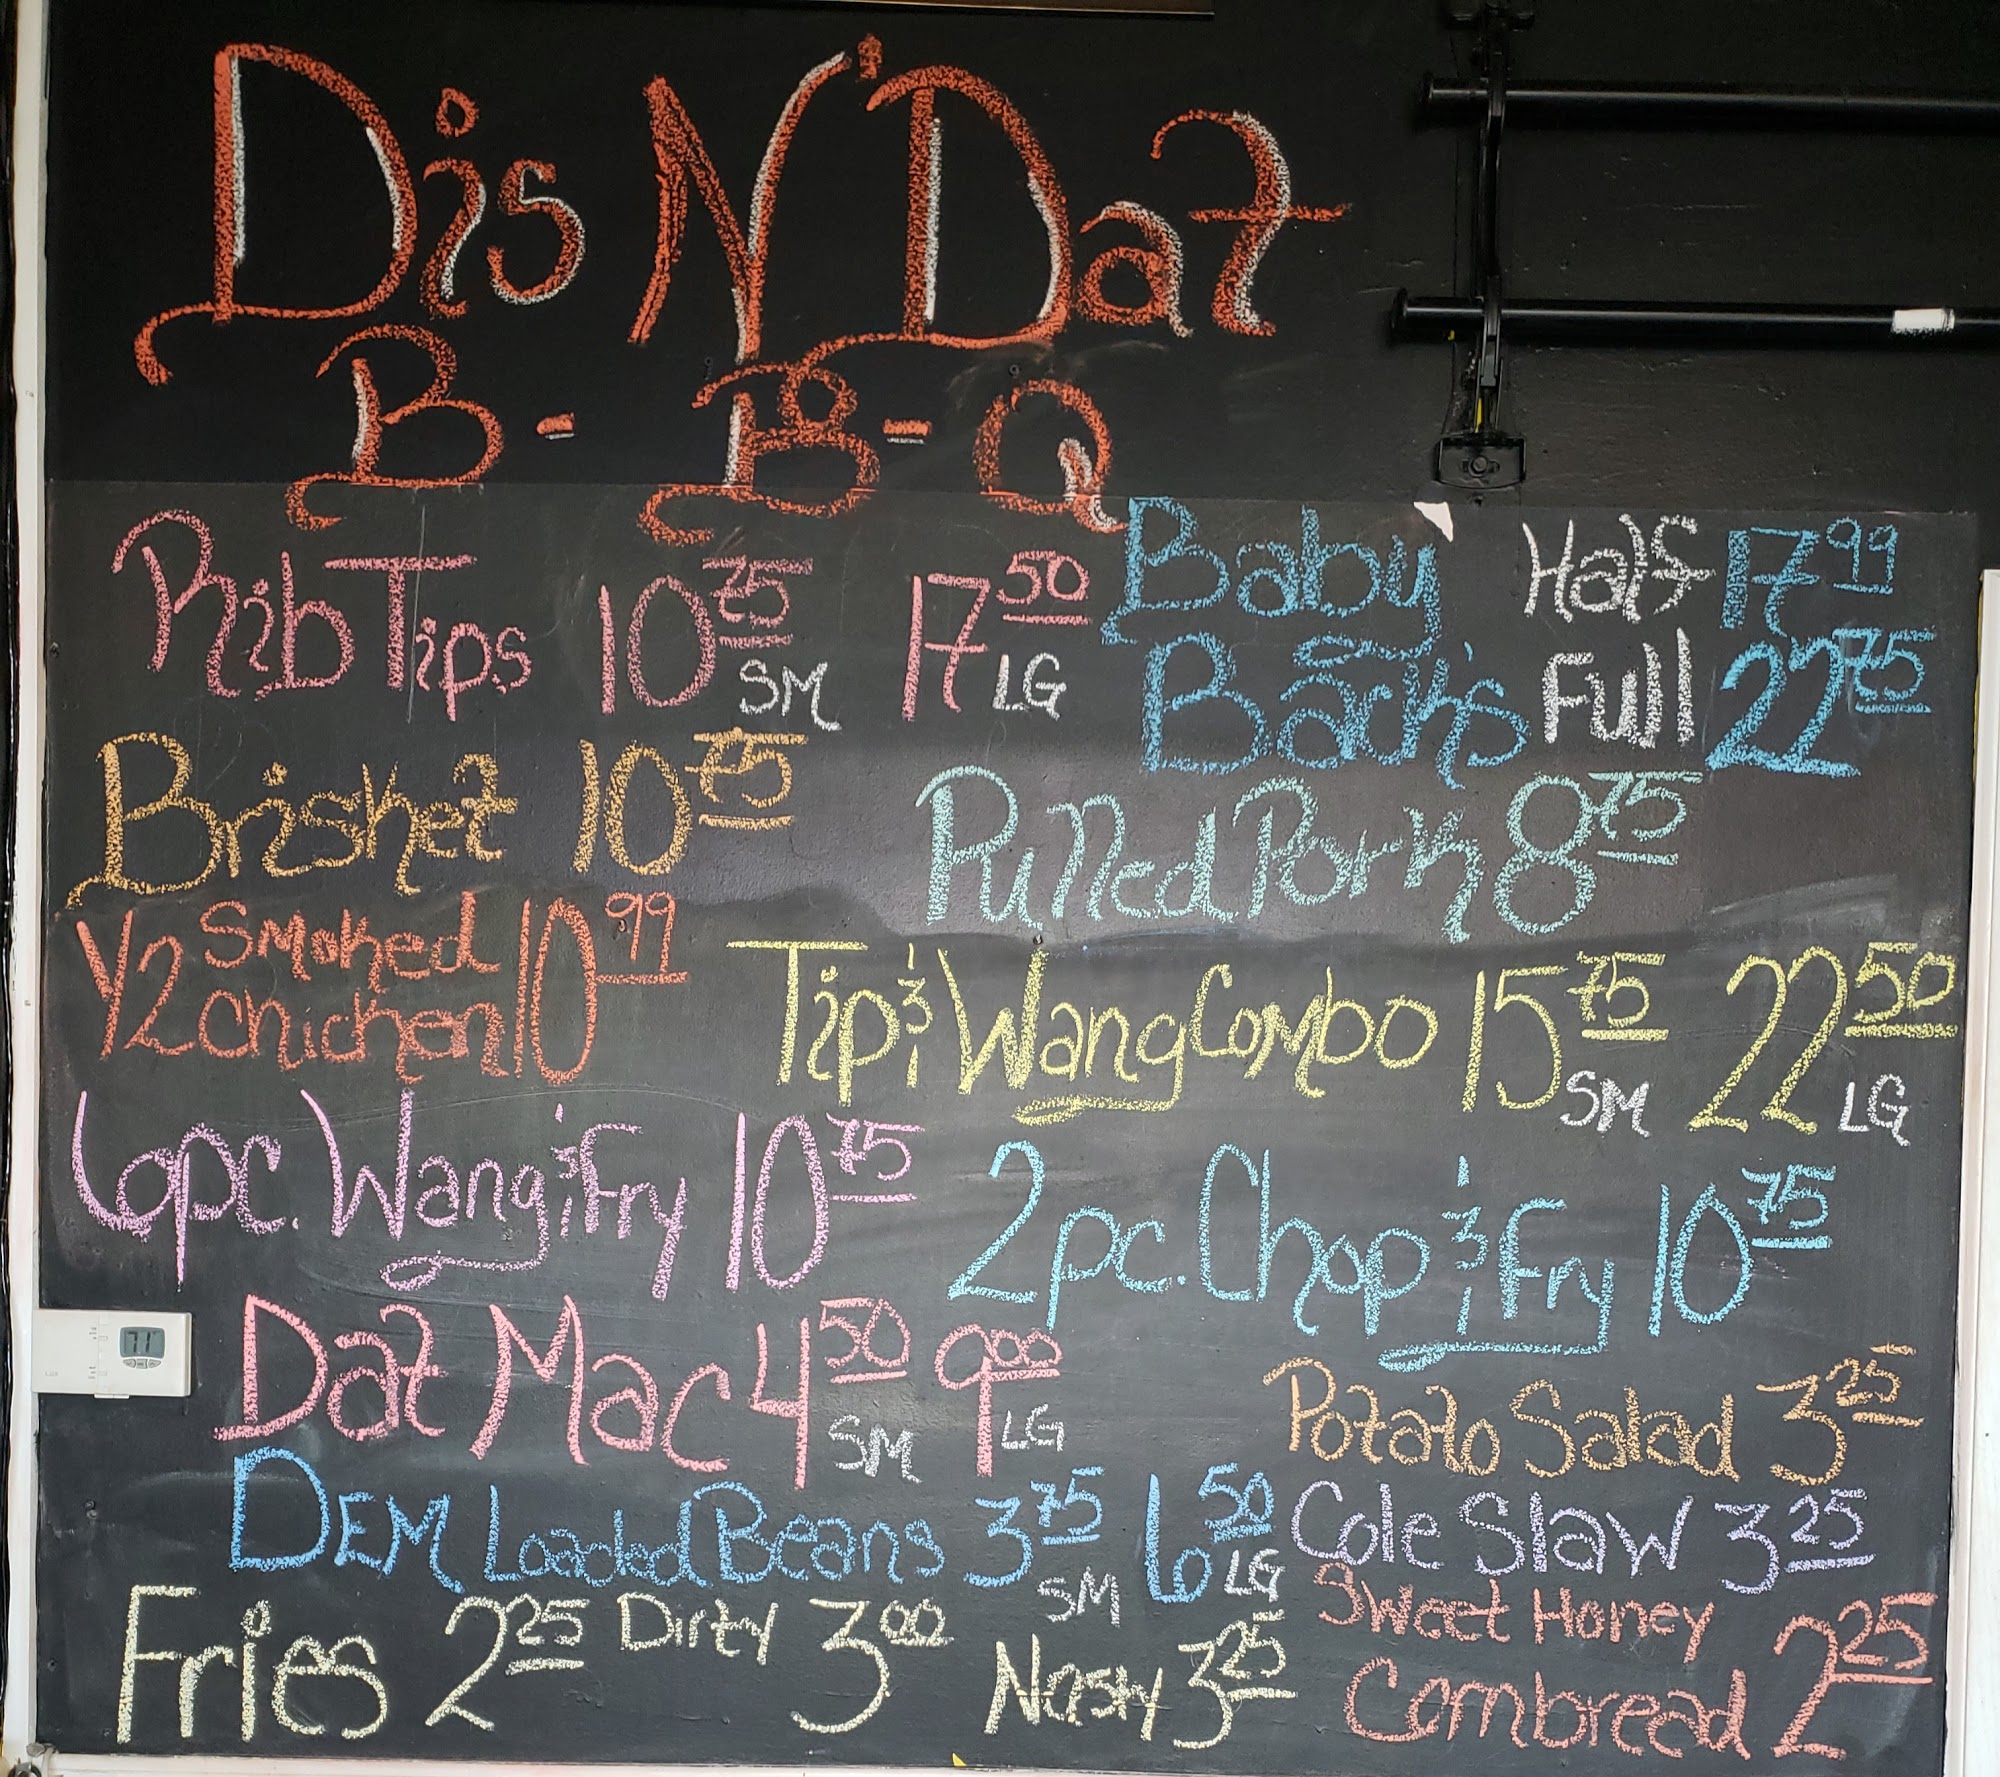 Dis N' Dat
B-B-Q
Rib Tips 10.75 SM 17.50 LG
Baby Back's Half 17.99
Full 22.75
Brisket 10.75
Pulled Pork 8.75
1/2 Smoked Chicken 10.99
Tip & Wang Combo 15.75 SM 22.50 LG
6pc. Wang & Fry 10.75
2pc. Chop & Fry 10.75
Dat Mac 4.50 SM 9.00 LG
Potato Salad 3.25
DEM Loaded Beans 3.75 SM 6.50 LG
Cole Slaw 3.25
Fries 2.25 Dirty 3.00 Nasty 3.25
Sweet Honey
Cornbread 2.25
71°